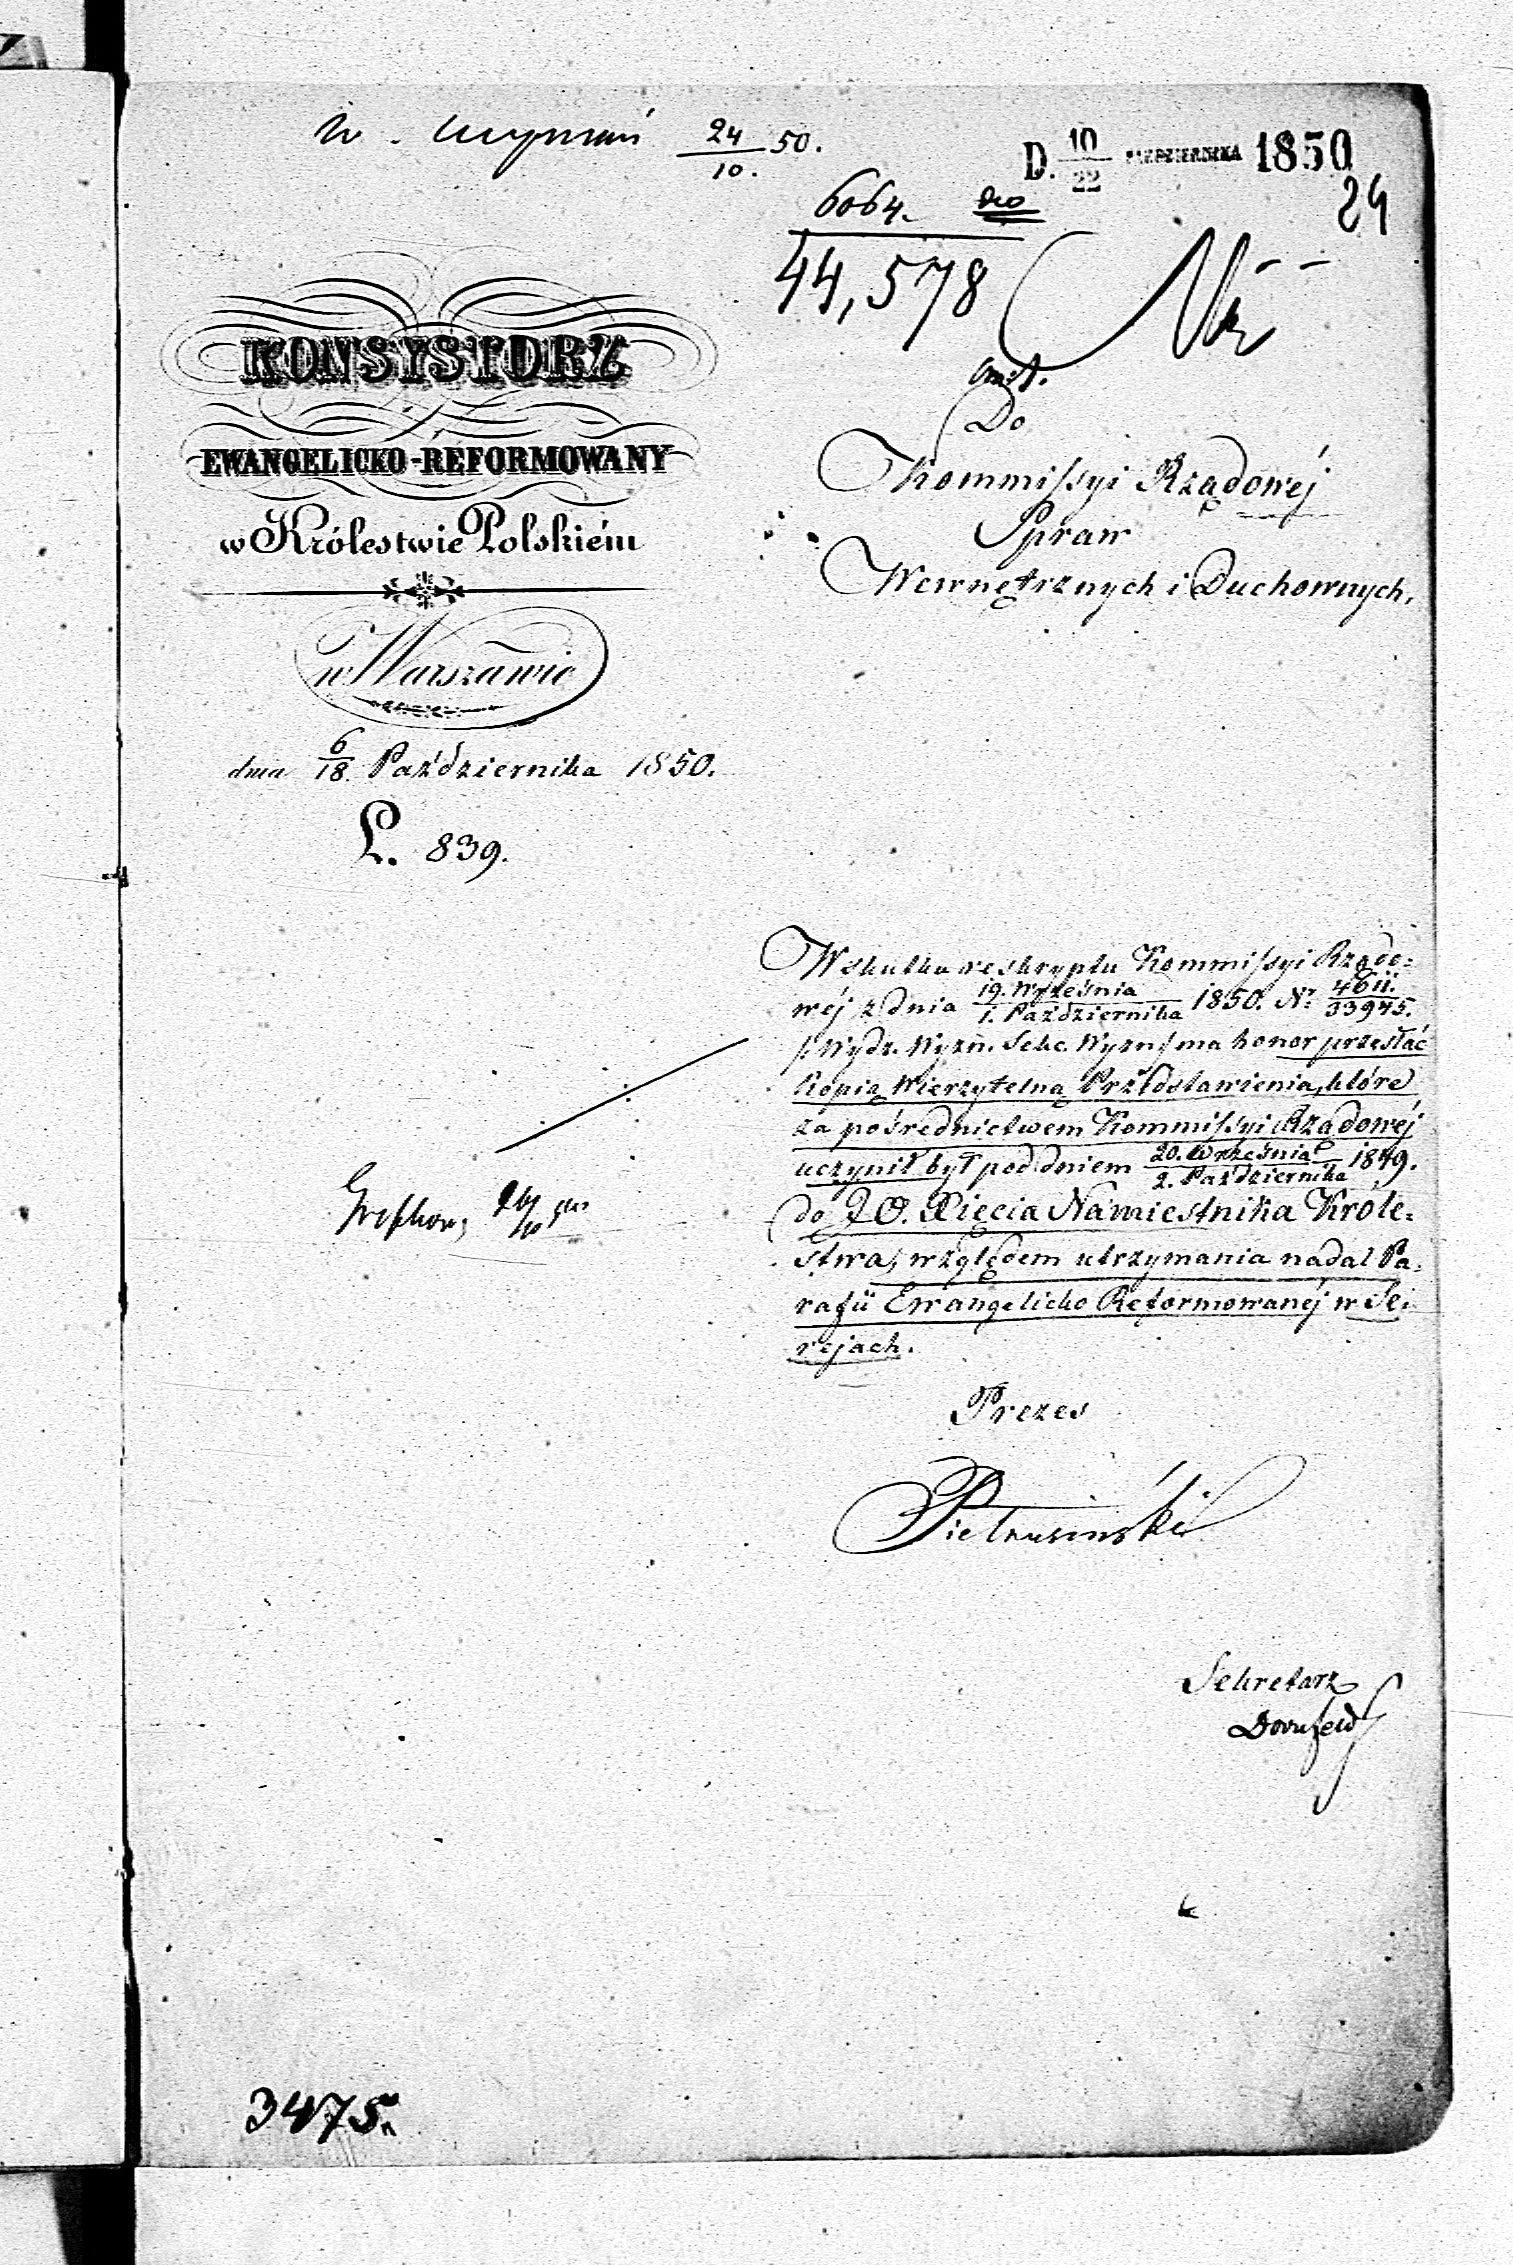 24/10. 50.
D. 10/22 PAŹDZIERNIKA 1850
24
6064.
44,578
KONSYSTORZ
EWANGELICKO-REFORMOWANY
w Królestwie Polskiém
w Warszawie
dnia 6/18. Października 1850.
L. 839.
Do
Kommissyi Rządowéj
Spraw
Wewnętrznych i Duchownych.
W skutku reskryptu Kommissyi Rządo=
wéj z dnia 19. Września/1. Października 1850. Nr. 4611./33945.
/: Wydz. Wyzń. Sekc. Wyzn / ma honor przesłać
kopią wierzytelną Przedstawienia, które
za pośrednictwem Kommissyi Rządowéj
uczynił był pod dniem 20. Września/2. Października 1849.
do J. O. Xięcia Namiestnika Króle=
stwa, względem utrzymania nadal Pa=
rafii Ewangelicko Reformowanéj w Se=
rejach.
Prezes
Pietrusiński
Sekretarz
Dornfeld
3475.